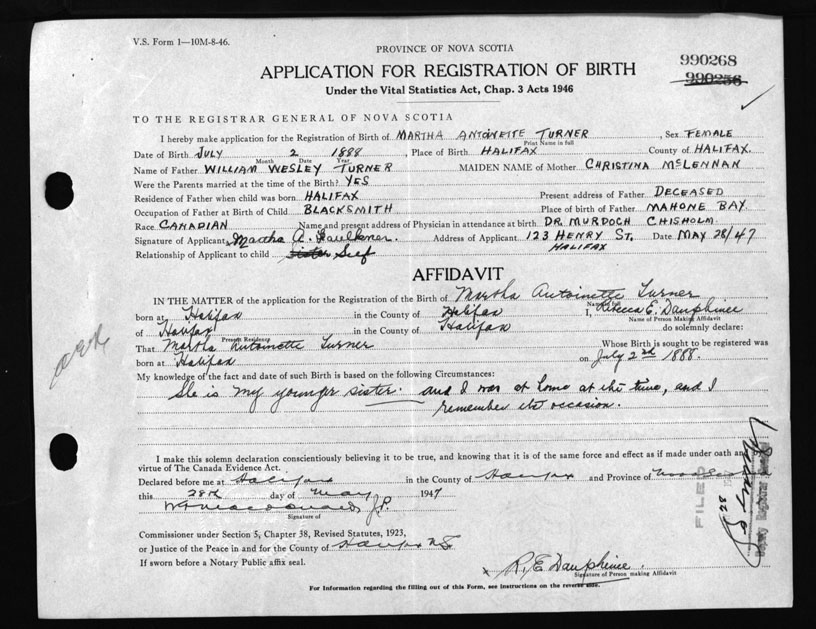 V.S. Form 1—10M-8-46.
PROVINCE OF NOVA SCOTIA
990268
990256
APPLICATION FOR REGISTRATION OF BIRTH
Under the Vital Statistics Act, Chap. 3 Acts 1946
TO THE REGISTRAR GENERAL OF NOVA SCOTIA
I hereby make application for the Registration of Birth of MARTHA ANTOINETTE TURNER, Sex FEMALE
Print Name in full
Date of Birth JULY 2 1888, Place of Birth HALIFAX County of HALIFAX.
Month Date Year
Name of Father WILLIAM WESLEY TURNER MAIDEN NAME of Mother CHRISTINA McLENNAN
Were the Parents married at the time of the Birth? YES
Residence of Father when child was born HALIFAX Present address of Father DECEASED
Occupation of Father at Birth of Child BLACKSMITH Place of birth of Father MAHONE BAY.
Race CANADIAN Name and present address of Physician in attendance at birth DR. MURDOCH CHISHOLM.
Signature of Applicant Martha A. Faulkner. Address of Applicant 123 HENRY ST. Date MAY 28/47
HALIFAX
Relationship of Applicant to child sister Self
AFFIDAVIT
IN THE MATTER of the application for the Registration of the Birth of Martha Antoinette Turner
Name in full
born at Halifax in the County of Halifax I, Rebecca E. Dauphinee
Name of Person Making Affidavit
of Halifax in the County of Halifax do solemnly declare:
Present Residence
That Martha Antoinette Turner Whose Birth is sought to be registered was
born at Halifax on July 2nd 1888.
My knowledge of the fact and date of such Birth is based on the following Circumstances:
She is my younger sister. and I was at home at the time, and I
remember the occasion.
I make this solemn declaration conscientiously believing it to be true, and knowing that it is of the same force and effect as if made under oath and
virtue of The Canada Evidence Act.
Declared before me at Halifax in the County of Halifax and Province of Nova Scotia
this 28th day of May 1947
Macdonald J.P.
Signature of
Commissioner under Section 5, Chapter 38, Revised Statutes, 1923,
or Justice of the Peace in and for the County of Halifax N.S.
If sworn before a Notary Public affix seal.
x R. E. Dauphinee.
Signature of Person making Affidavit
For Information regarding the filling out of this Form, see instructions on the reverse side.
FILED
28
Deputy Registrar General